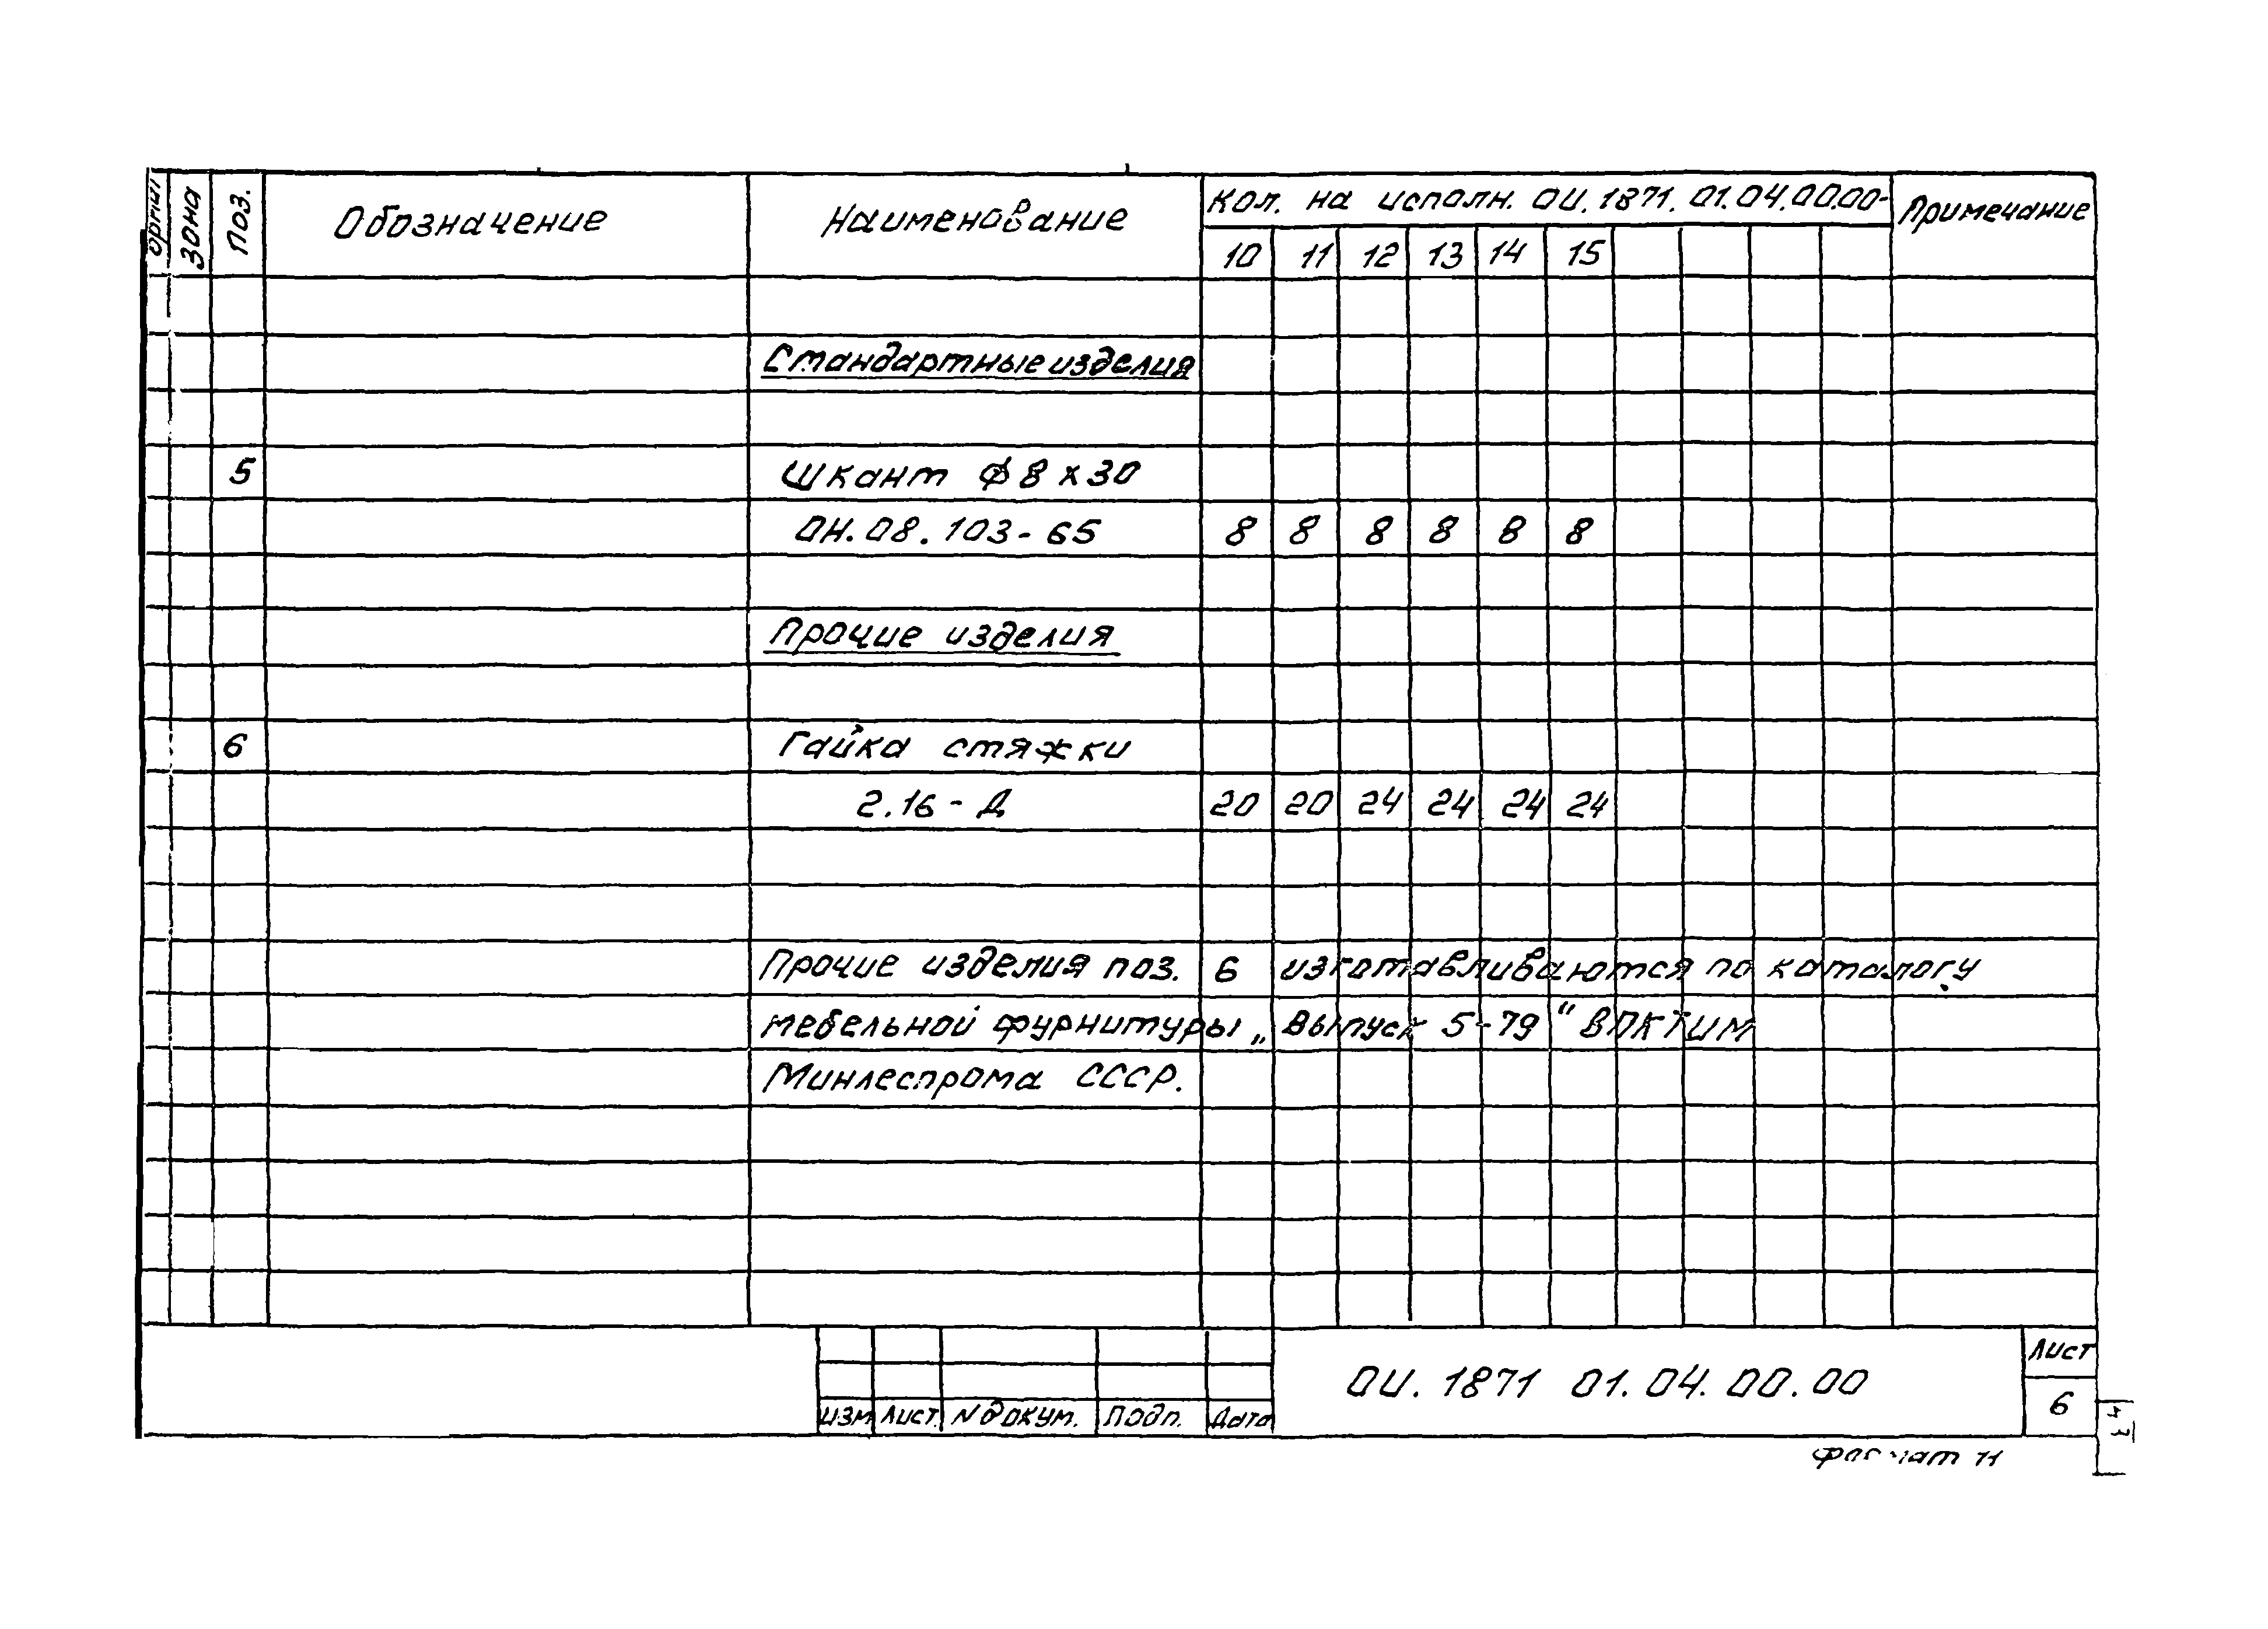 Зона Поз. Обозначение Наименование Кол. на исполн. ОИ.1871.01.04.00.00- Примечание
10 11 12 13 14 15
Стандартные изделия
5 Шкант ф 8 х 30
ОН.08.103-65 8 8 8 8 8 8
Прочие изделия
6 Гайка стяжки
2.16-Д 20 20 24 24 24 24
Прочие изделия поз. 6 изготавливаются по каталогу
мебельной фурнитуры „Выпуск 5-79" ВПКТИМ
Минлеспрома СССР.
ОИ. 1871 01.04.00.00 Лист
6
Изм Лист. N докум. Подп. Дата
Формат 11